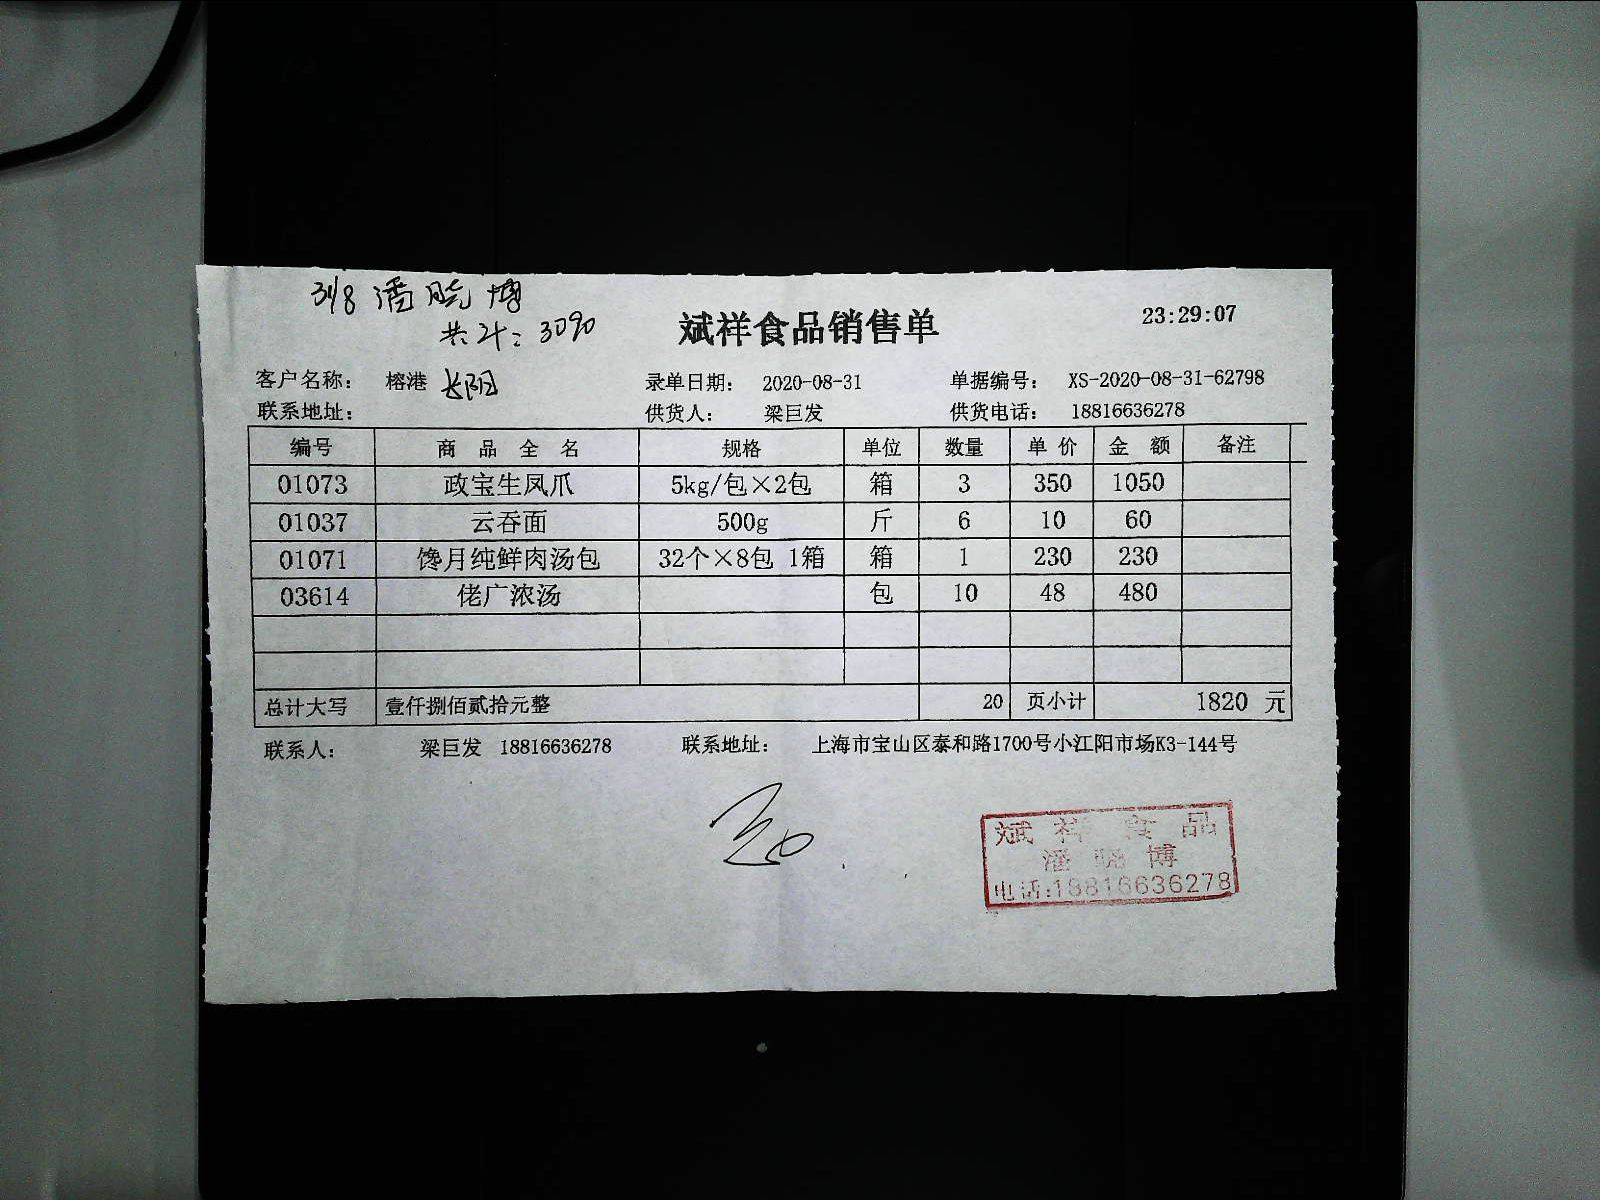 318 潘晓博
共计: 3090
斌祥食品销售单
23:29:07
客户名称: 榕港 长阳 录单日期: 2020-08-31 单据编号: XS-2020-08-31-62798
联系地址: 供货人: 梁巨发 供货电话: 18816636278
编号 商品全名 规格 单位 数量 单价 金额 备注
01073 政宝生凤爪 5kg/包×2包 箱 3 350 1050
01037 云吞面 500g 斤 6 10 60
01071 馋月纯鲜肉汤包 32个×8包 1箱 箱 1 230 230
03614 佬广浓汤 包 10 48 480
总计大写 壹仟捌佰贰拾元整 20 页小计 1820 元
联系人: 梁巨发 18816636278 联系地址: 上海市宝山区泰和路1700号小江阳市场K3-144号
斌祥食品
潘晓博
电话:18816636278